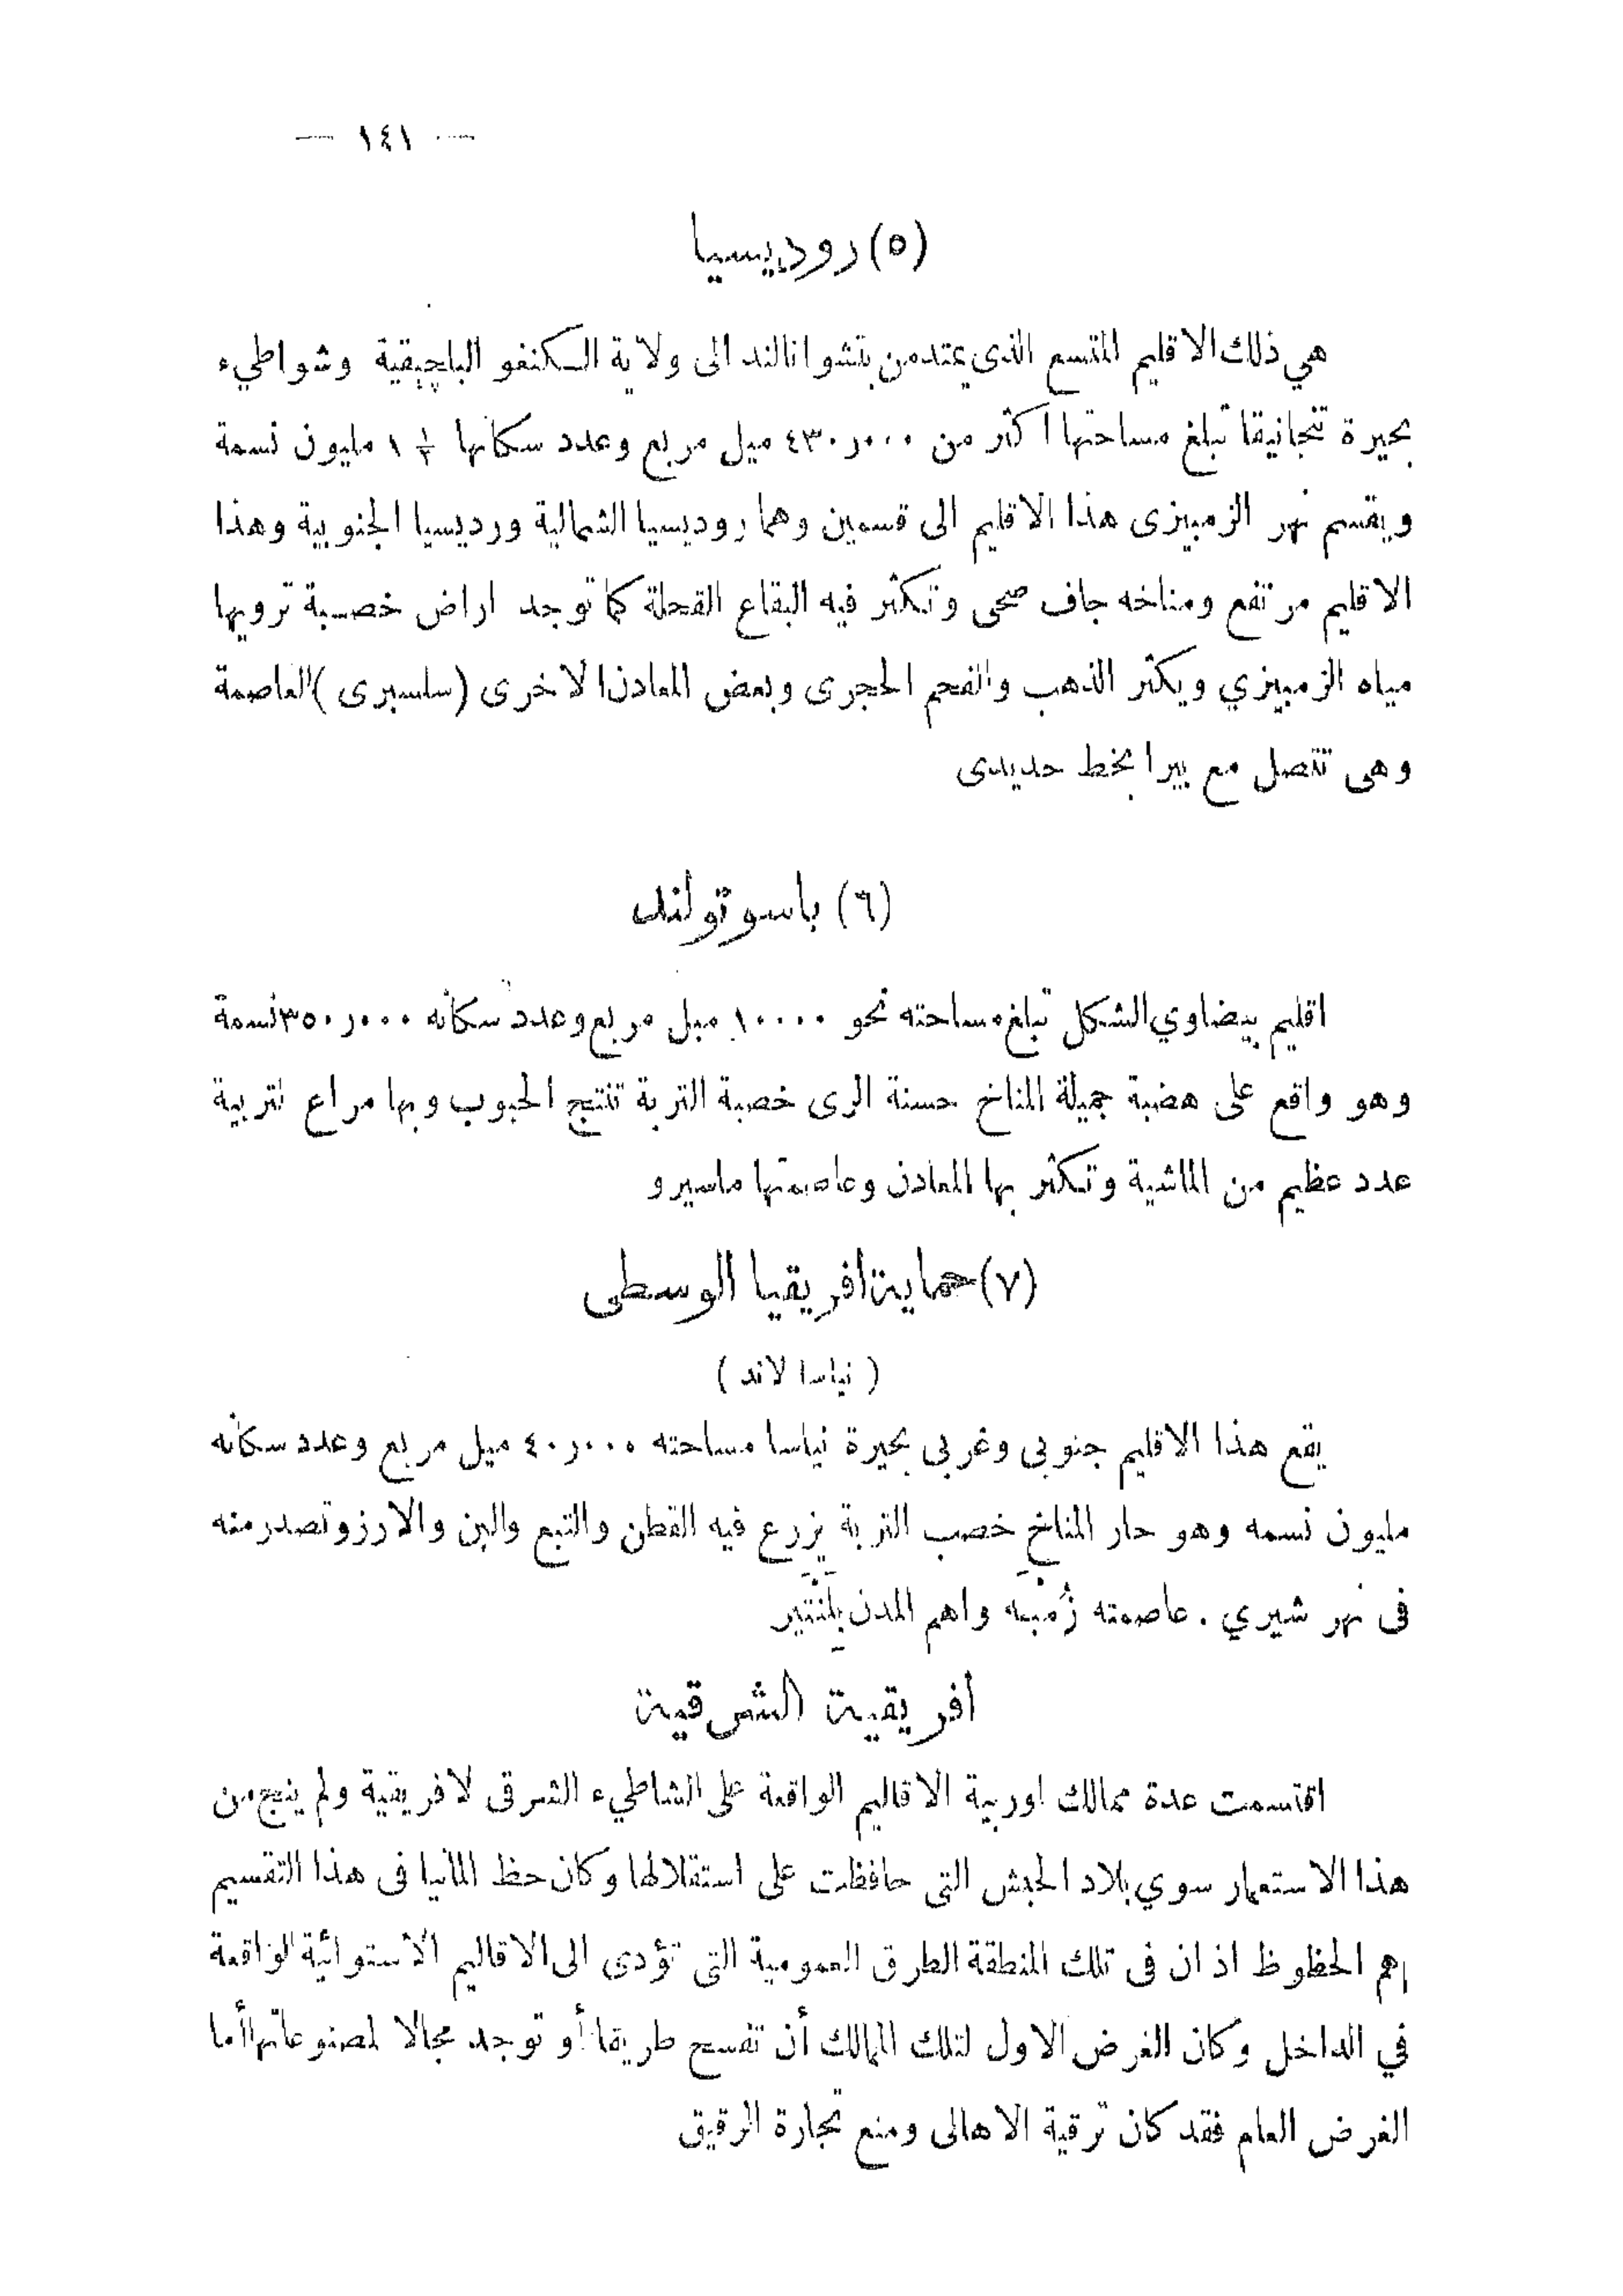 — ١٤١ —
(٥) روديسيا
هي ذلك الاقليم المتسع الذى يمتد من بتشوانالند الى ولاية الكنغو البلجيقية وشواطيء
بحيرة تنجانيقا تبلغ مساحتها اكثر من ٤٣٠٫٠٠٠ ميل مربع وعدد سكانها ١ مليون نسمة
ويقسم نهر الزمبيزى هذا الاقليم الى قسمين وهما روديسيا الشمالية ورديسيا الجنوبية وهذا
الاقليم مرتفع ومناخه جاف صحى وتكثر فيه البقاع القحلة كما توجد اراض خصبة ترويها
مياه الزمبيزي ويكثر الذهب والفحم الحجرى وبعض المعادن الاخرى (سلسبرى) العاصمة
وهى تتصل مع بيرا بخط حديدى
(٦) باسوتولند
اقليم بيضاوي الشكل تبلغ مساحته نحو ١٠٠٠٠ ميل مربع وعدد سكانه ٣٥٠٫٠٠٠ نسمة
وهو واقع على هضبة جميلة المناخ حسنة الرى خصبة التربة تنتج الحبوب وبها مراع لتربية
عدد عظيم من الماشية وتكثر بها المعادن وعاصمتها ماسيرو
(٧) حماية افريقيا الوسطى
(نياسا لاند)
يقع هذا الاقليم جنوبى وغربى بحيرة نياسا مساحته ٤٠٫٠٠٠ ميل مربع وعدد سكانه
مليون نسمه وهو حار المناخ خصب التربة يزرع فيه القطن والتبع والبن والارز وتصدر منه
فى نهر شيري . عاصمته زُمْبه واهم المدن بِلَنْتَير
افريقية الشرقية
اقتسمت عدة ممالك اوربية الاقاليم الواقعة على الشاطيء الشرقى لافريقية ولم ينج من
هذا الاستعمار سوي بلاد الحبش التى حافظت على استقلالها وكان حظ المانيا فى هذا التقسيم
اهم الحظوظ اذ ان فى تلك المنطقة الطرق العمومية التى تؤدى الى الاقاليم الاستوائية الواقعة
في الداخل وكان الغرض الاول لتلك الممالك أن تفسح طريقا أو توجد مجالا لمصنوعاتها أما
الغرض العام فقد كان ترقية الاهالى ومنع تجارة الرقيق